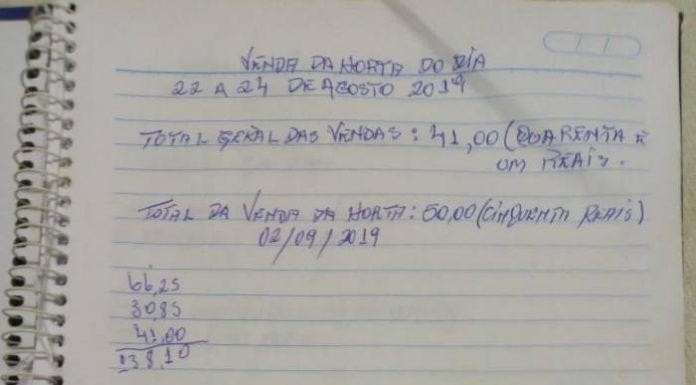 VENDA DA HORTA DO DIA
22 A 24 DE AGOSTO 2019
TOTAL GERAL DAS VENDAS: 41,00 (QUARENTA E
UM REAIS.
TOTAL DA VENDA DA HORTA: 50,00 (CINQUENTA REAIS)
02/09/2019
66,25
30,85
41,00
138,10